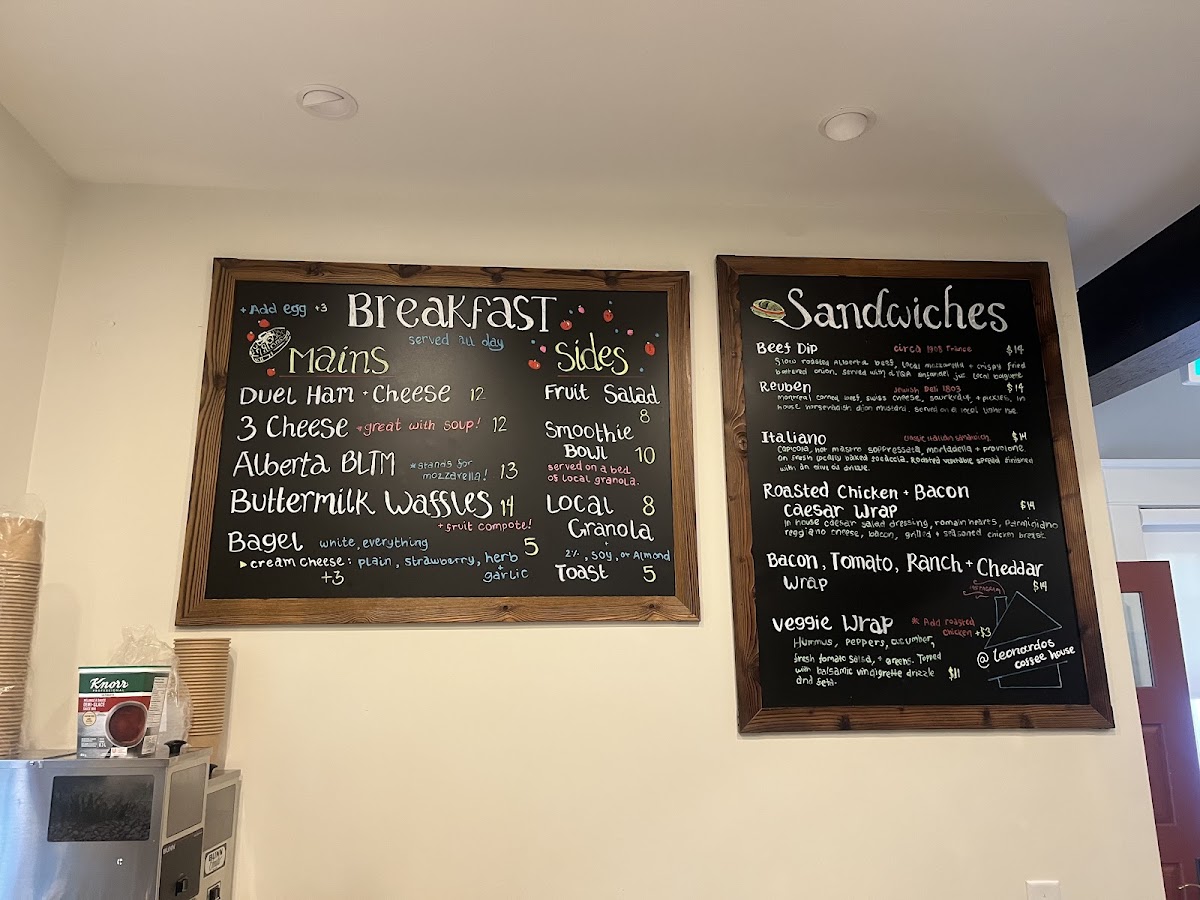 + Add egg +3
Breakfast
served all day
Mains
Duel Ham + Cheese 12
3 Cheese *great with soup! 12
Alberta BLTM *stands for mozzarella! 13
Buttermilk Waffles 14
+ fruit compote!
Bagel white, everything 5
▸ cream cheese: plain, strawberry, herb
+3 + garlic
Sides
Fruit Salad
8
Smoothie
Bowl 10
served on a bed
of local granola.
Local 8
Granola
+
2%, soy, or Almond
Toast 5
Sandwiches
Beef Dip circa 1908 France $14
Slow roasted Alberta beef, local mozzarella + crispy fried
battered onion. Served with jus local baguette
Reuben Jewish Deli 1803 $14
montreal corned beef, swiss cheese, sauerkraut, + pickles, in
house horseradish dijon mustard, served on a local rye.
Italiano $14
capicola, hot mastro soppressata, mortadella + provolone
on fresh locally baked focaccia. Roasted vegetable spread finished
with an olive oil drizzle.
Roasted Chicken + Bacon
Caesar Wrap $14
In house caesar salad dressing, romain hearts, Parmigiano
reggiano cheese, bacon, grilled + seasoned chicken breast.
Bacon, Tomato, Ranch + Cheddar
Wrap $14
INSTAGRAM
veggie Wrap * Add roasted
chicken +$3
Hummus, peppers, cucumber,
fresh tomato salad, + greens. Topped
with balsamic vinaigrette drizzle $11
and feta.
@leonardos
coffee house
Knorr
PROFESSIONAL
DEMI-GLACE
BUNN
BUNN